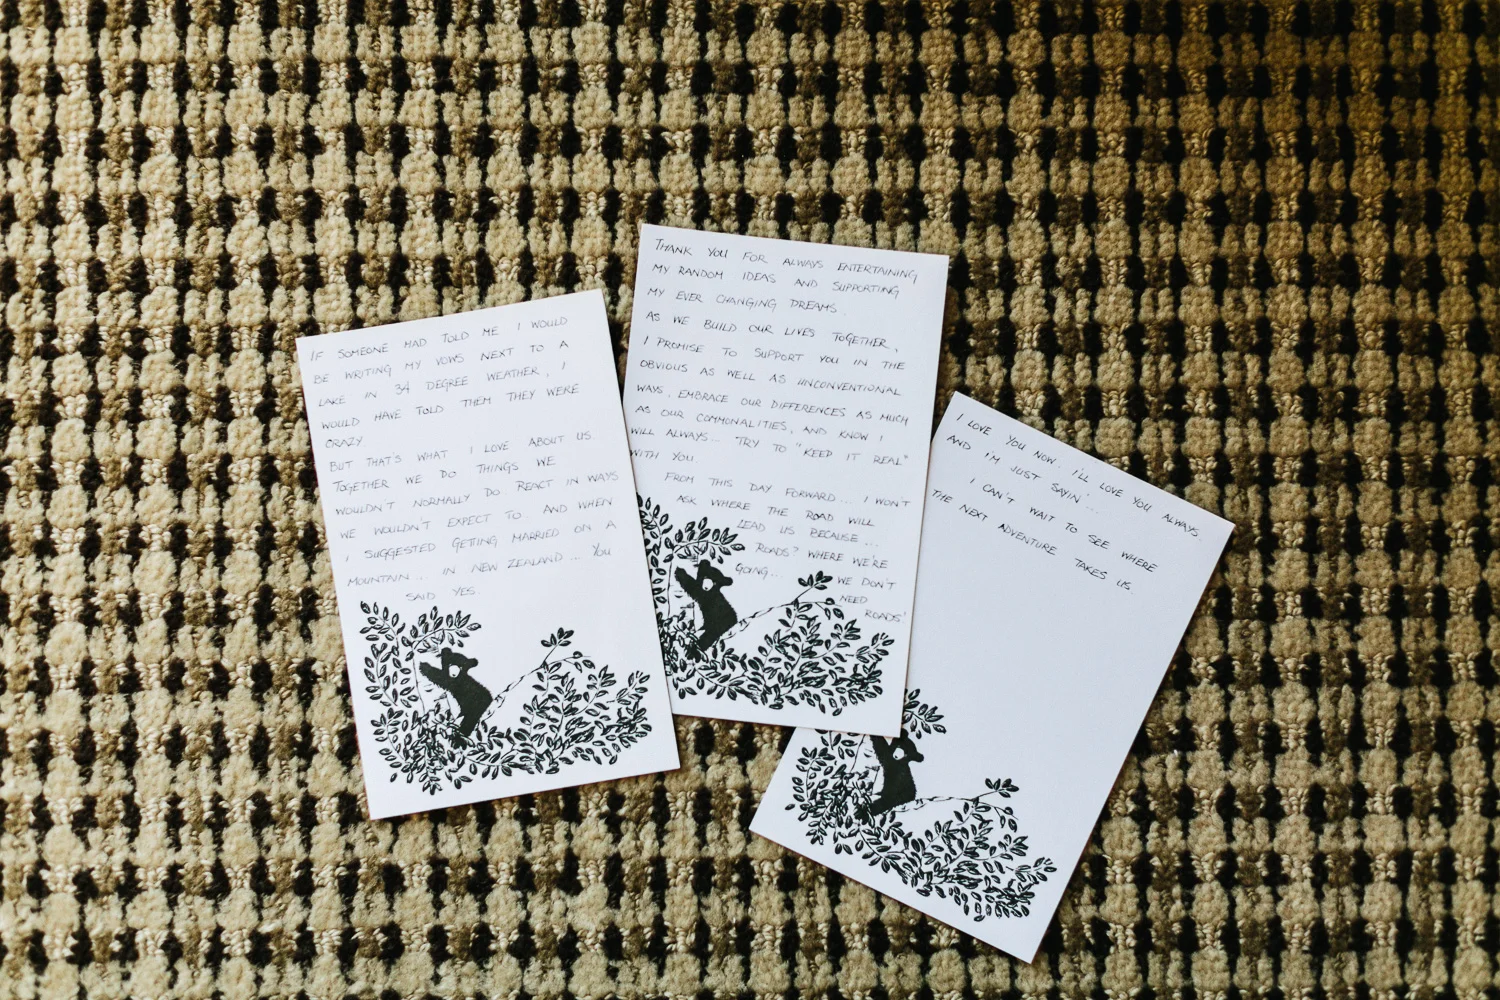 IF SOMEONE HAD TOLD ME I WOULD
BE WRITING MY VOWS NEXT TO A
LAKE IN 34 DEGREE WEATHER, I
WOULD HAVE TOLD THEM THEY WERE
CRAZY
BUT THAT'S WHAT I LOVE ABOUT US.
TOGETHER WE DO THINGS WE
WOULDN'T NORMALLY DO. REACT IN WAYS
WE WOULDN'T EXPECT TO. AND WHEN
I SUGGESTED GETTING MARRIED ON A
MOUNTAIN... IN NEW ZEALAND... YOU
SAID YES.
THANK YOU FOR ALWAYS ENTERTAINING
MY RANDOM IDEAS AND SUPPORTING
MY EVER CHANGING DREAMS.
AS WE BUILD OUR LIVES TOGETHER,
I PROMISE TO SUPPORT YOU IN THE
OBVIOUS AS WELL AS UNCONVENTIONAL
WAYS. EMBRACE OUR DIFFERENCES AS MUCH
AS OUR COMMONALITIES, AND KNOW I
WILL ALWAYS... TRY TO "KEEP IT REAL"
WITH YOU
FROM THIS DAY FORWARD... I WON'T
ASK WHERE THE ROAD WILL
LEAD US BECAUSE...
ROADS? WHERE WE'RE
GOING... WE DON'T
NEED
ROADS!
I LOVE YOU NOW. I'LL LOVE YOU ALWAYS.
AND I'M JUST SAYIN'...
I CAN'T WAIT TO SEE WHERE
THE NEXT ADVENTURE TAKES US.